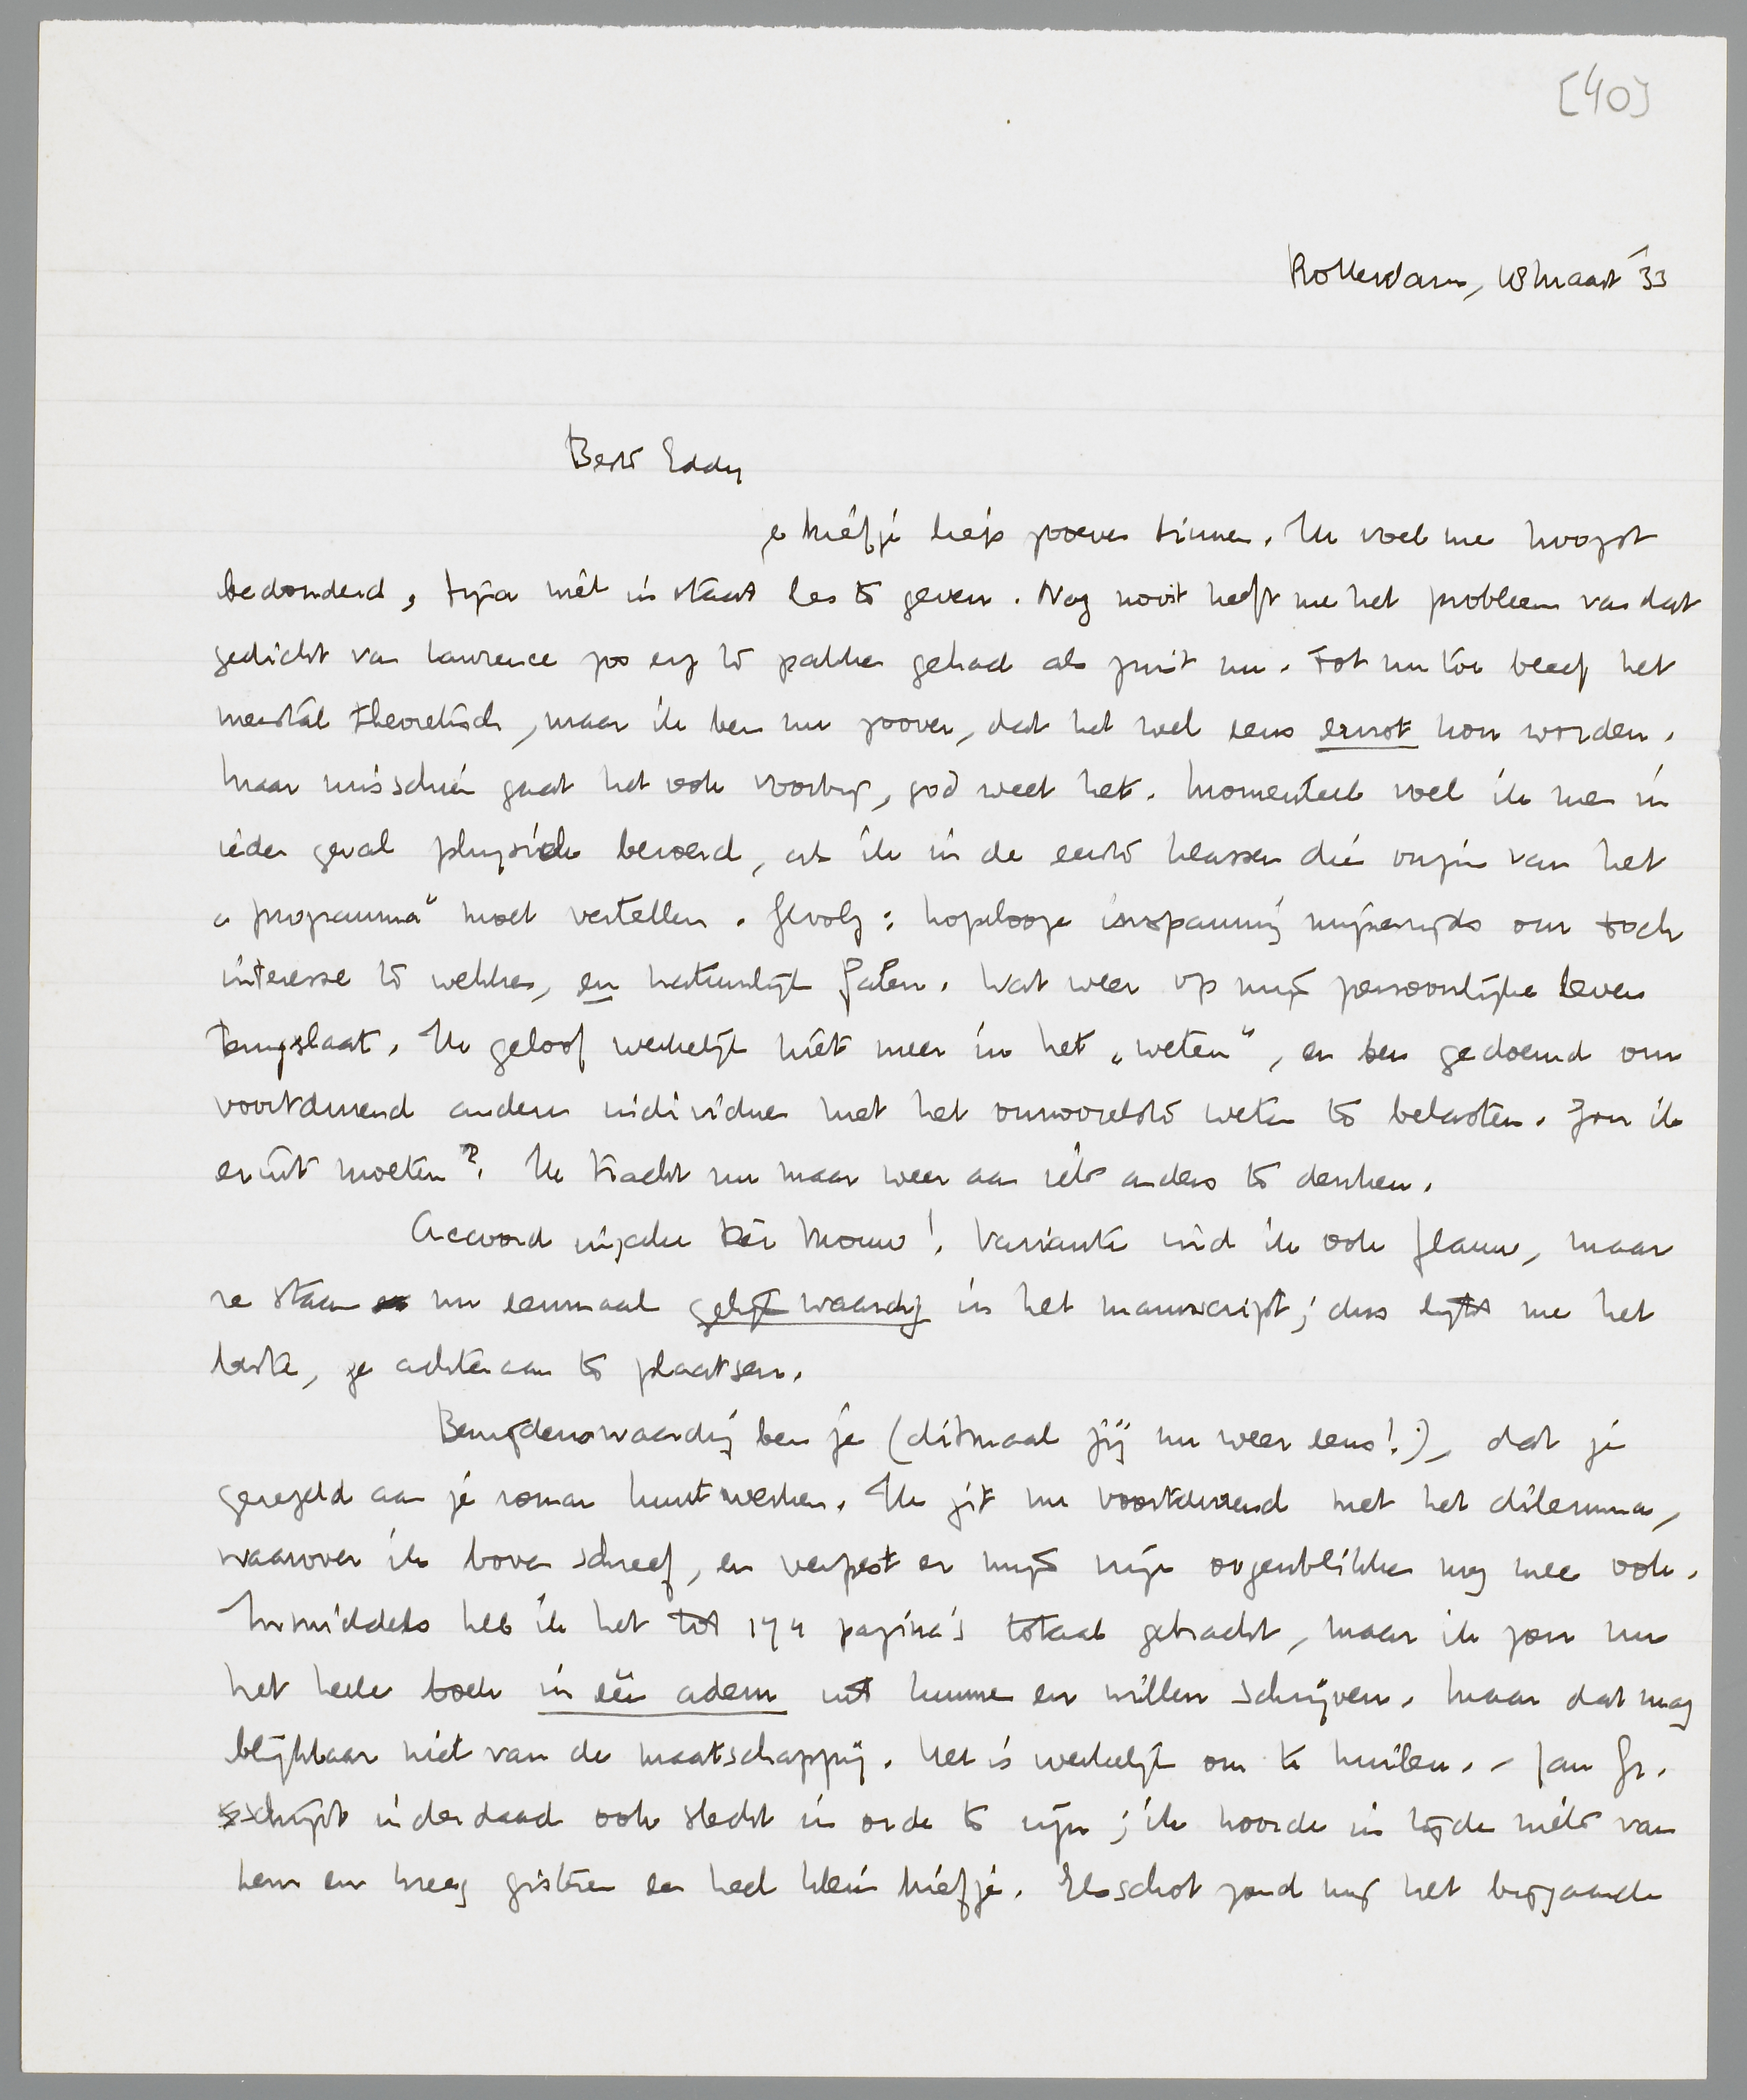 [40]
Rotterdam, 18 Maart '33
Beste Eddy
je briefje liep zoeven binnen. Ik voel me hoogst
bedonderd, bijna niet in staat les te geven. Nog nooit heeft me het probleem van dat
gedicht van Lawrence zoo erg te pakken gehad als juist nu. Tot nu toe bleef het
meestal theoretisch, maar ik ben nu zoover, dat het wel eens ernst kon worden.
Maar misschien gaat het ook voorbij, god weet het. Momenteel voel ik me in
ieder geval physiek beroerd, als ik in de eerste klassen die onzin van het
„programma" moet vertellen. Gevolg: hopelooze inspanning mijnerzijds om toch
interesse te wekken, en natuurlijk falen. Wat weer op mijn persoonlijke leven
terugslaat. Ik geloof werkelijk niet meer in het „weten", en ben gedoemd om
voortdurend andere individuen met het onnoozelste weten te belasten. Zou ik
eruit moeten? Ik tracht nu maar weer aan iets anders te denken.
Accoord inzake Dèr Mouw! Varianten vind ik ook flauw, maar
ze staan nu eenmaal gelijkwaardig in het manuscript; dus lijkt me het
beste, ze achteraan te plaatsen.
Benijdenswaardig ben je (ditmaal jij nu weer eens!), dat je
geregeld aan je roman kunt werken. Ik zit nu voortdurend met het dilemma,
waarover ik boven schreef, en verpest er mijn vrije oogenblikken nog mee ook.
Inmiddels heb ik het tot 174 pagina's totaal gebracht, maar ik zou nu
het heele boek in één adem uit kunnen en willen schrijven. Maar dat mag
blijkbaar niet van de maatschappij. Het is werkelijk om te huilen. – Jan Gr.
schijnt inderdaad ook slecht in orde te zijn; ik hoorde in tijden niets van
hem en kreeg gisteren een heel klein briefje. Elsschot zond mij het bijgaande